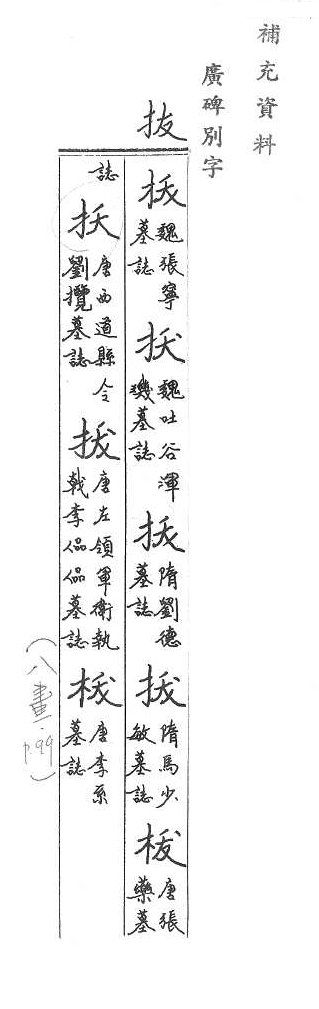 補充資料
廣碑別字
拔
魏張寧墓誌
魏吐谷渾璣墓誌
隋劉德墓誌
隋馬少敏墓誌
唐張藥墓
誌
唐西道縣令劉攬墓誌
唐左領軍衛執戟李品品墓誌
唐李系墓誌
(八畫.p.99)